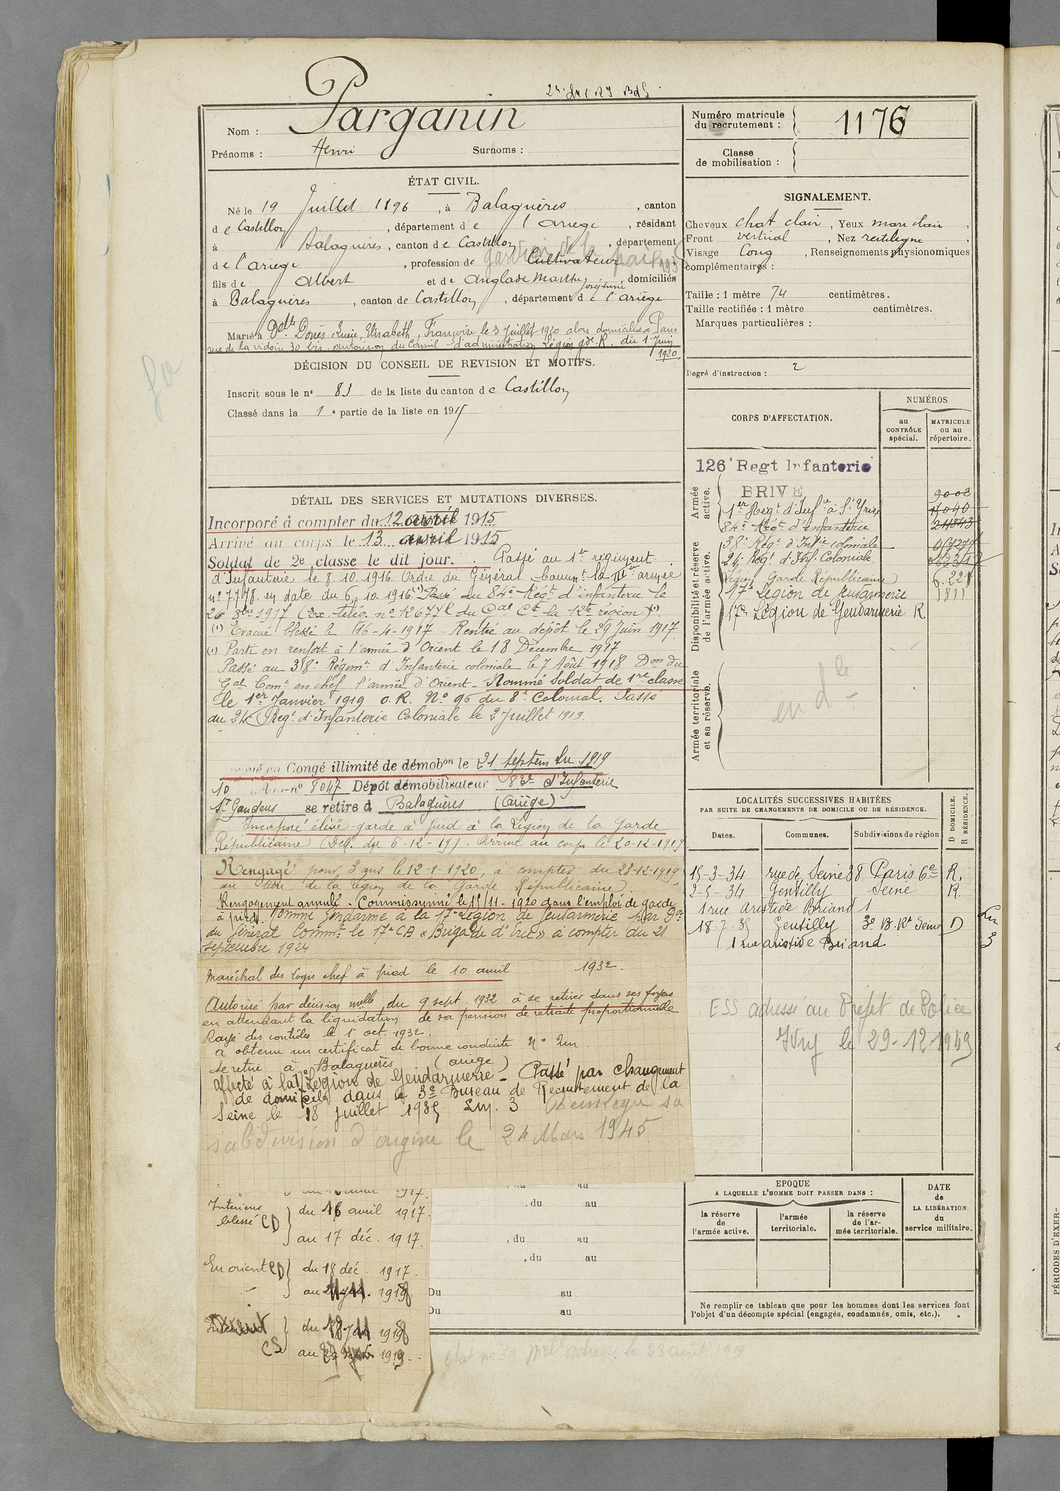 Parganin
Nom :
Prénoms : Henri Surnoms :
Numéro matricule du recrutement : 1176
Classe de mobilisation :
ÉTAT CIVIL.
Né le 19 Juillet 1896, à Balaguères, canton
de Castillon, département de l'Ariège, résidant
à Balaguères, canton de Castillon, département
de l'Ariège, profession de Cultivateur
fils de Albert et de Anglade Marthe Joséphine, domiciliés
à Balaguères, canton de Castillon, département de l'Ariège
Marié à Delle Donès, Lucie, Elisabeth, Françoise le 3 Juillet 1920 alors domiciliée à Paris
rue de la Victoire 30 bis. autorisation du Conseil d'administration Légion gde R. du 1er Juin
1920
DÉCISION DU CONSEIL DE REVISION ET MOTIFS.
Inscrit sous le no 83 de la liste du canton de Castillon
Classé dans la 1e partie de la liste en 1915
SIGNALEMENT.
Cheveux chat clair, Yeux mar clair,
Front vertical, Nez rectiligne,
Visage Long, Renseignements physionomiques
complémentaires :
Taille : 1 mètre 74 centimètres.
Taille rectifiée : 1 mètre centimètres.
Marques particulières :
Degré d'instruction : 2
CORPS D'AFFECTATION.
NUMÉROS
au CONTRÔLE spécial.
MATRICULE ou au répertoire.
Armée active.
126e Regt Infanterie
BRIVE
1er Regt d'Infie à St Yrieix
84e Regt d'infanterie
Disponibilité et réserve de l'armée active.
38e Régt d'Infie coloniale
24e Regt d'Inf. Coloniale
Légion Garde Républicaine 6.221
17e Légion de Gendarmerie 1811
17e Légion de Gendarmerie R
Armée territoriale et sa réserve.
en dle
DÉTAIL DES SERVICES ET MUTATIONS DIVERSES.
Incorporé à compter du 12 avril 1915
Arrivé au corps le 13 avril 1915
Soldat de 2e classe le dit jour. Passé au 1er régiment
d'Infanterie le 8.10.1916. Ordre du Général
no 7778 en date du 6.10.1916. Passé au 84e Regt d'infanterie le
Evacué blessé le 16-4-1917 - Rentré au dépôt le 29 Juin 1917.
Parti en renfort à l'armée d'Orient le 18 Décembre 1917
Passé au 38e Régimt d'Infanterie coloniale le 7 Août 1918 Don du
Gal Comt en chef l'armée d'Orient - Nommé Soldat de 1re classe
le 1er Janvier 1919 O.R. No 96 du 8e Colonial. Passé
au 24e Regt d'Infanterie Coloniale le 2 Juillet 1919.
Congé illimité de démobon le 21 Septembre 1919
10 no 8047 Dépôt démobilisateur 83e d'Infanterie
St Gaudens se retire à Balaguères (Ariège)
Incorporé élève-garde à pied à la Légion de la Garde
Républicaine (Déc. du 6-12-19). Arrivé au corps le 20-12-1919
Rengagé pour 3 ans le 12-1-1920, à compter du 23-12-1919
au titre de la Légion de la Garde Républicaine.
Rengagement annulé - Commissionné le 11/11-1920 dans l'emploi de garde
à pied. Nommé Gendarme à la 17e Légion de Gendarmerie
du Général Commt le 17e CA à compter du 21
Septembre 1924
Maréchal des Logis chef à pied le 10 avril 1932.
Autorisé par décision mlle du 9 sept. 1932 à se retirer dans ses foyers
en attendant la liquidation de sa pension de retraite proportionnelle
Rayé des contrôles le 1er oct. 1932.
a obtenu un certificat de bonne conduite
Se retire à Balaguères (ariège)
affecté à la 17e Légion de Gendarmerie - Passé par changement
de domicile dans le 3e Bureau de Recrutement de la
Seine le 18 juillet 1935
subdivision d'origine le 24 Mars 1945
LOCALITÉS SUCCESSIVES HABITÉES
PAR SUITE DE CHANGEMENTS DE DOMICILE OU DE RÉSIDENCE.
Dates. Communes. Subdivisions de région D DOMICILE. R RÉSIDENCE.
15-3-34 rue de Seine 38 Paris 6e R.
2-5-34 Gentilly Seine R
1 rue Aristide Briand 1
18-7-35 Gentilly 3e B. Rt Seine D
1 rue aristide Briand
ESS adressé au Préfet de Police
Ivry le 29-12-1949
Intérieur blessé CD du 16 avril 1917
au 17 déc. 1917.
En orient CD du 18 déc. 1917.
CS
du au
du au
du au
Du au
Du au
EPOQUE
A LAQUELLE L'HOMME DOIT PASSER DANS :
la réserve de l'armée active.
l'armée territoriale.
la réserve de l'armée territoriale.
DATE de LA LIBÉRATION du service militaire.
Ne remplir ce tableau que pour les hommes dont les services font
l'objet d'un décompte spécial (engagés, condamnés, omis, etc.).
PÉRIODES D'EXER-